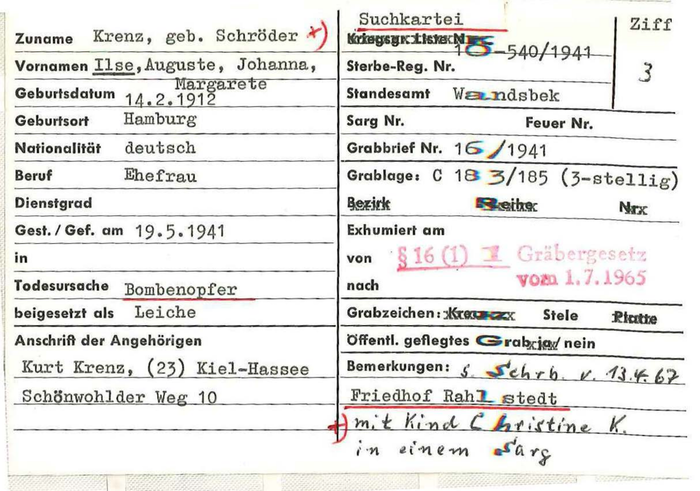 Zuname Krenz, geb. Schröder +)
Vornamen Ilse, Auguste, Johanna,
Margarete
Geburtsdatum 14.2.1912
Geburtsort Hamburg
Nationalität deutsch
Beruf Ehefrau
Dienstgrad
Gest. / Gef. am 19.5.1941
in
Todesursache Bombenopfer
beigesetzt als Leiche
Anschrift der Angehörigen
Kurt Krenz, (23) Kiel-Hassee
Schönwohlder Weg 10
Suchkartei
Kriegsgr. Liste Nr.
-540/1941
Sterbe-Reg. Nr.
Standesamt Wandsbek
Sarg Nr. Feuer Nr.
Grabbrief Nr. 16/1941
Grablage: C 183/185 (3-stellig)
Bezirk Reihe Nr.
Exhumiert am
von
nach
§ 16 (1) 1 Gräbergesetz
vom 1.7.1965
Grabzeichen: Kreuz Stele Platte
Öffentl. geflegtes Grab ja / nein
Bemerkungen: s. Schrb. v. 13.4.67
Friedhof Rahlstedt
+) mit Kind Christine K.
in einem Sarg
Ziff
3